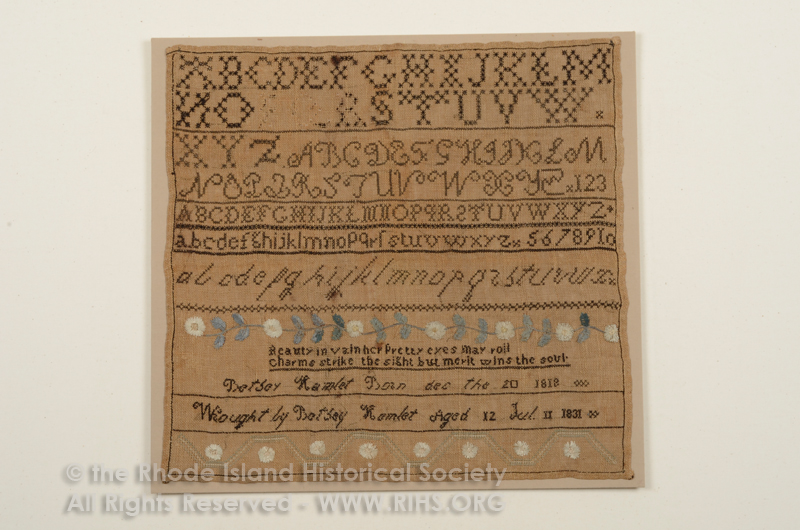 ABCDEFGHIJKLM
NO RSTUVW x
XYZ ABCDEFGHIJKLM
NOPQRSTUVWXYZ x123
ABCDEFGHIJKLMNOPQRSTUVWXYZ
abcdefghijklmnopqrſstuvwxyzx 5678910
abcdefghijklmnopqrstuvwx
Beauty in vain her Pretty eyes May roll
Charms strike the sight but merit wins the soul.
Betsey Hamlet Born dec the 20 1818
Wrought by Betsey Hamlet Aged 12 Jul 11 1831
© the Rhode Island Historical Society
All Rights Reserved - WWW.RIHS.ORG